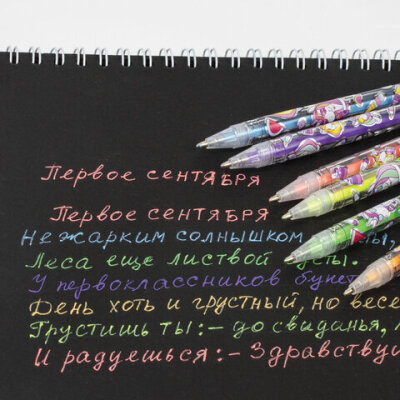 Первое сентября
Первое сентября
Нежарким солнышком
Леса еще листвой густы.
У первоклассников букет
День хоть и грустный, но весе
Грустишь ты:- до свиданья,
И радуешься:- Здравствуй